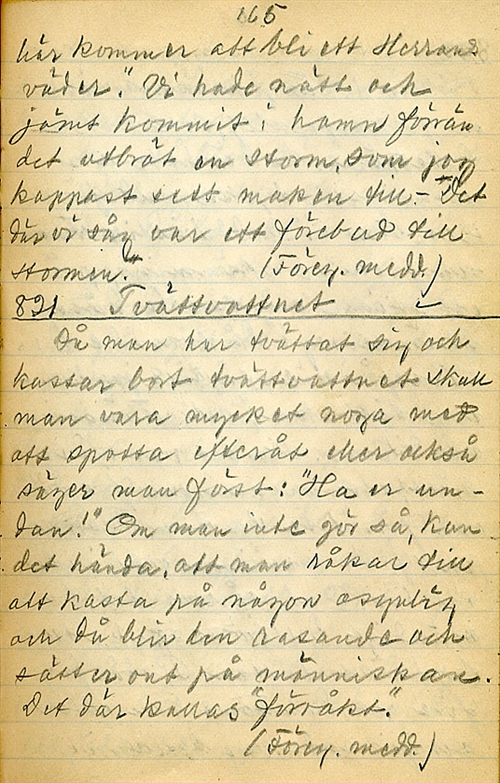 165
här kommer att bli ett Herrans
väder." Vi hade nätt och
jämt kommit i hamn förrän
det utbröt en storm, som jag
knappast sett maken till. – Det
där vi såg var ett förebud till
stormen." (Föreg. medd.)
821 Tvättvattnet
Då man har tvättat sig och
kastar bort tvättvattnet skall
man vara mycket noga med
att spotta efteråt eller också
säger man först: "Ha er un-
dan!" Om man inte gör så, kan
det hända, att man råkar till
att kasta på någon osynlig
och då blir den rasande och
sätter ont på människan.
Det där kallas "förråkt."
(Föreg. medd.)